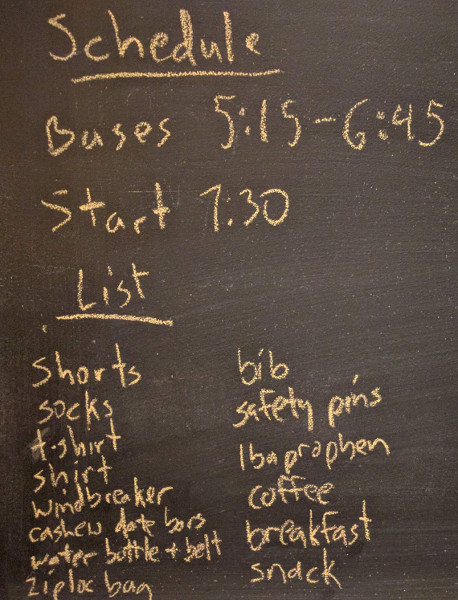 Schedule
Buses 5:15-6:45
Start 7:30
List
shorts
socks
t-shirt
shirt
windbreaker
cashew date bars
water bottle + belt
ziploc bag
bib
safety pins
Ibaprophen
coffee
breakfast
snack